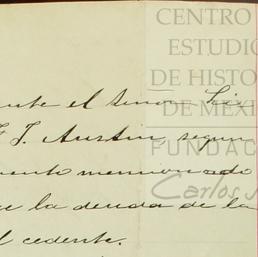 CENTRO
ESTUDIO
DE HISTO
DE MÉXI
FUNDAC
Carlos S
el Señor
J. Austin, segun
mencionado
la deuda de la
cedente.